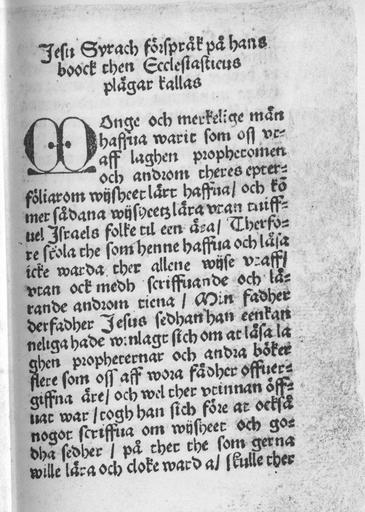 Jesu Syrach förspråk på hans
boock then Ecclesiasticus
plägar kallas
MOnge och merkelige män
haffua warit som oss vt-
aff laghen propheternen
och androm theres epter-
föliarom wijsheet lärt haffua/ och kō
mer sådana wijsheetz lära vtan tuiff-
uel Israels folke til een ära/ Therfo-
re skola the som henne haffua och läsa
icke warda ther allene wijse vtaff/
vtan ock medh scriffuande och lä-
rande androm tiena/ Min fadher
derfadher Jesus sedhan han eenkan
neliga hade winlagt sich om at läsa la
ghen propheternar och andra böker
flere som oss aff wora fädher offuer-
giffna äre/ och wel ther vtinnan öff-
uat war/ togh han sich före at också
nogot scriffua om wijsheet och go-
dha sedher/ på thet the som gerna
wille lära och cloke warda/ skulle ther